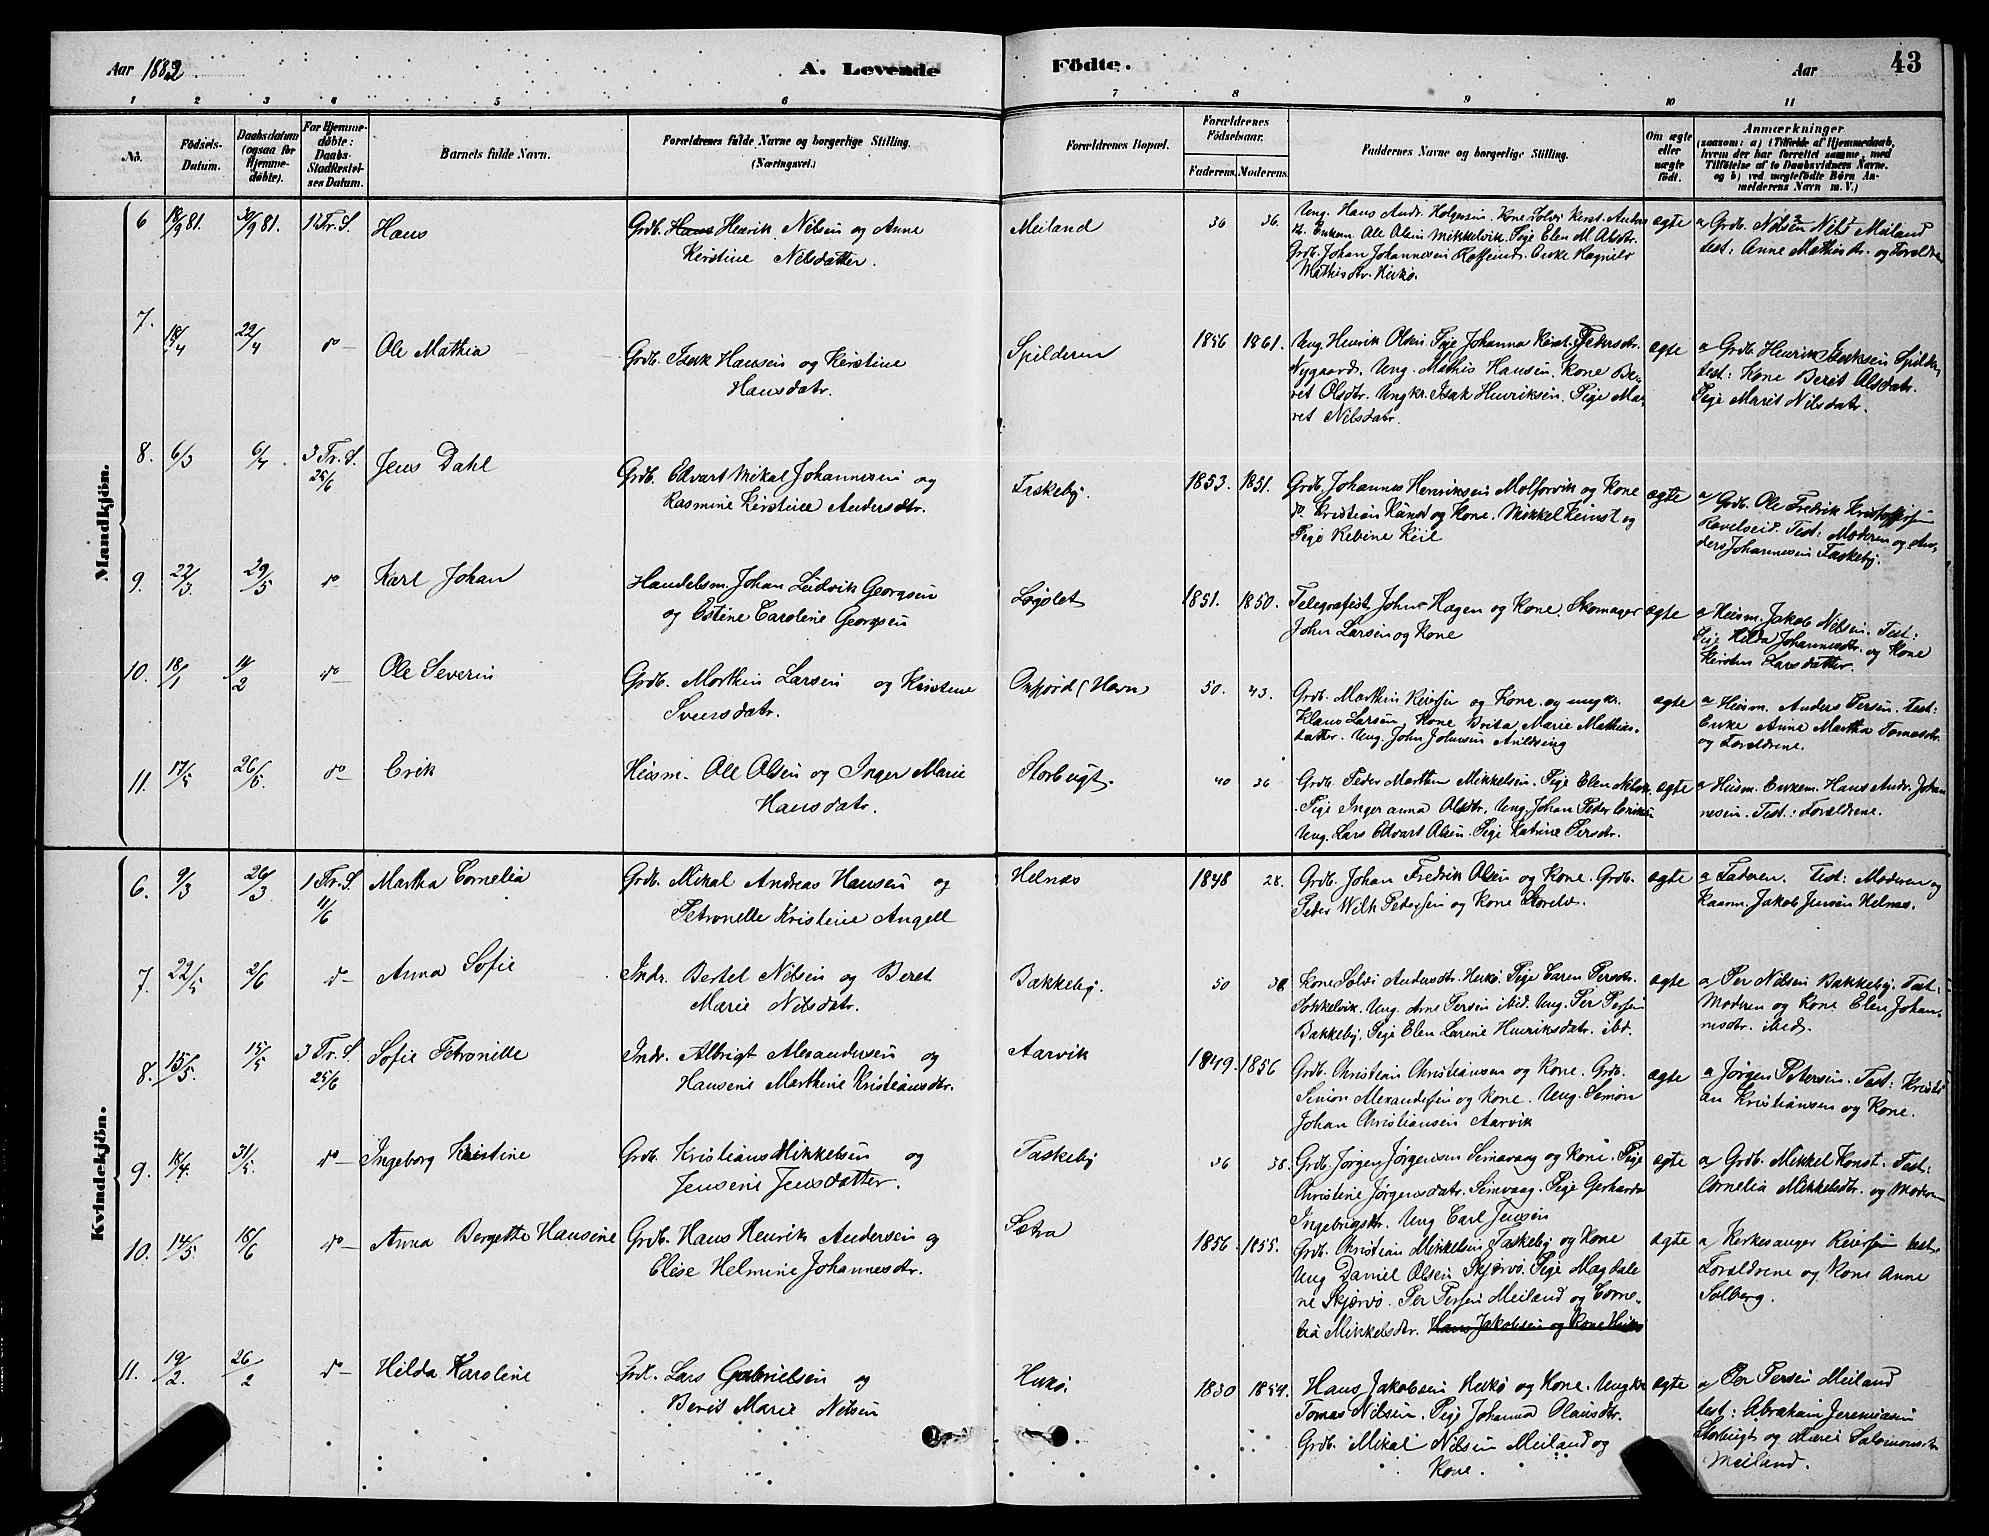 Aar 1882
A. Levende
Födte.
Aar
43
1 2 3 4 5 6 7 8 9 10 11
No.
Födsels-
Datum.
Daabsdatum
(ogsaa for
Hjemme-
døbte).
For Hjemme-
døbte:
Daabs-
Stadfæstel-
ses Datum.
Barnets fulde Navn.
Forældrenes fulde Navne og borgerlige Stilling.
(Næringsvei.)
Forældrenes Bopæl.
Forældrenes
Födselsaar.
Faderens. Moderens.
Faddernes Navne og borgerlige Stilling.
Om ægte
eller
uægte
födt.
Anmærkninger
(saasom: a) i Tilfælde af Hjemmedaab,
hvem der har forrettet samme, med
Tilföielse af to Daabsvidners Navne.
og b) ved uægtefödte Börn An-
melderens Navn m. V.)
Mandkjön.
6 18/9 81. 30/9 81. 1 Tr. S. Hans
Grdb. Hans Henrik Nilsen og Anne
Kirstine Nilsdatter.
Meiland 36 36.
Ung. Hans Andr. Holgersen. Kone Solvi Kirst. Anders
Ole Olsen Mikkelvik. Pige Elen M. Olsdtr.
Grdb. Johan Johannesen. Enke Ragnild
Mathisdtr. Hukø.
ægte
a Grdb. Nilsen Nils Meiland
test: Anne Mathisdtr. og Foreldre
7. 18/4 22/4 do Ole Mathia
Grdb. Isak Hansen og Kirstine
Hansdatr.
Spilderen 1856 1861.
Ung. Henrik Olsen. Pige Johanna Kirst. Pedersdtr.
Nygaard. Ung. Mathis Hansen. Kone Be-
ret Olsdtr. Ungkr. Isak Henriksen. Pige Ma-
ret Nilsdatr.
ægte
a Grdb. Henrik Isaksen Spilder,
test: Kone Berit Olsdatr.
Pige Marit Nilsdatr.
8. 6/3 6/4. 3 Tr. S. 25/6 Jens Dahl
Grdb. Edvart Mikal Johannesen og
Rasmine Kirstine Andersdtr.
Taskeby. 1853. 1851.
Grdb. Johannes Henriksen Molforvik og Kone
do. Kristian Kunst og Kone. Mikkel Kunst og
Pige Rebine Keil
ægte
a Grdb. Ole Fredrik Kristoffersen
Ravelseid. Test: Moderen og An-
ders Johannesen Taskeby.
9. 22/3. 29/5 do Karl Johan
Handelsm. Johan Ludvik Georgsen
og Estine Caroline Georgsen
Løgslet 1851. 1850.
Telegrafist John Hagen og Kone. Skomager
John Larsen og Kone
ægte
a Huusm. Jakob Nilsen. Test:
Pige Hilda Johannesdtr. og Kone
Kirsten Larsdatter.
10. 18/1 14/2 do Ole Severin
Grdb. Morthen Larsen og Kirstine
Sversdatr.
(Havn) 50. 43.
Grdb. Marthin Reiersen og Kone. og ungkr.
Klaus Larsen, Kone Brita Marie Mathias-
datter. Ung. John Johnsen
ægte
a Huusm. Anders Persen. Test:
Enke Anne Martha Tomasdtr.
og Foreldrene.
11. 17/5 26/5. do Erik
Huusm. Ole Olsen og Inger Marie
Hansdatr.
Storbugt. 40 36
Grdb. Peder Marthin Mikkelsen. Pige Elen
Pige Inger anna Olsdtr. Ung. Johan Peder Eriksen
Ung. Lars Edvart Olsen. Pige Katrine Persdtr.
ægte
a Huusm. Enkem. Hans Andr. Johan
nesen. Test: Foreldrene.
Kvindekjön.
6. 9/3 26/3 1 Tr. S. 11/6 Martha Cornelia
Grdb. Mikal Andreas Hansen og
Petronelle Kristine Angell
Helnæs 1848 28.
Grdb. Johan Fredrik Olsen og Kone. Grdb.
Peder Wilh Pedersen og Kone
ægte
a Faderen. Test: Moderen og
Kaarm. Jakob Jensen Helnæs.
7. 22/5 2/6 do Anna Sofie
Indr. Bertel Nilsen og Beret
Marie Nilsdatr.
Bakkeby. 50 38
Kone Solvi Andersdtr. Hukø. Pige Caren Persdtr.
Sokkelvik. Ung. Arne Persen ibid. Ung. Per Persen
Bakkeby. Pige Elen Larine Henriksdatr. ibd.
ægte
a Per Nilsen Bakkeby. Test:
Modren og Kone Elen Johan-
nesdtr. ibed.
8. 15/5. 15/5 3 Tr. S. 25/6 Sofie Petronille
Indr. Albrigt Alexandersen og
Hansine Marthine Kristiansdtr.
Aarvik 1849. 1856
Grdb. Christian Christiansen og Kone. Grdb.
Simon Alexandersen og Kone. Ung. Simon
Johan Christiansen Aarvik
ægte
a Jørgen Petersen. Test: Kristi
an Kristiansen og Kone.
9. 18/4. 31/5. do Ingeborg Kristine
Grdb. Kristians Mikkelsen og
Jensine Jensdatter.
Taskeby 36 38.
Grdb. Jørgen Jørgensen Semavaag og Kone. Pige
Christine Jørgensdatr. Simvaag. Pige Gerharda
Ingebrigtsdtr. Ung Carl Jensen
ægte
a Grdb. Mikkel Konst. Test:
Cornelia Mikkelsdtr. og Moderen
10. 14/5 18/6 do Anna Bergette Hansine
Grdb. Hans Henrik Andersen og
Elise Helmine Johannesdtr.
Sætra 1856. 1855.
Grdb. Christian Mikkelsen Taskeby og Kone
Ung Daniel Olsen Skjervø. Pige Magdale
ne Skjervø. Per Persen Meiland og Corne-
lia Mikkelsdtr. Hans Jakobsen og Kone Hukø
ægte
a Kirkesanger Reiersen test:
Foreldrene og Kone Anne
Solberg.
11. 19/2. 26/2 do Hilda Karoline
Grdb. Lars Gabrielsen og
Berit Marie Nilsen
Hukø. 1830 1854.
Hans Jakobsen Hukø og Kone. Ungkr
Tomas Nilsen. Pige Johanna Olausdtr.
Grdb. Mikal Nilsen Meiland og
Kone.
ægte
a Per Persen Meiland
test: Abraham Jeremiasen
Storbugt og Marie Salomonsdtr
Meiland.